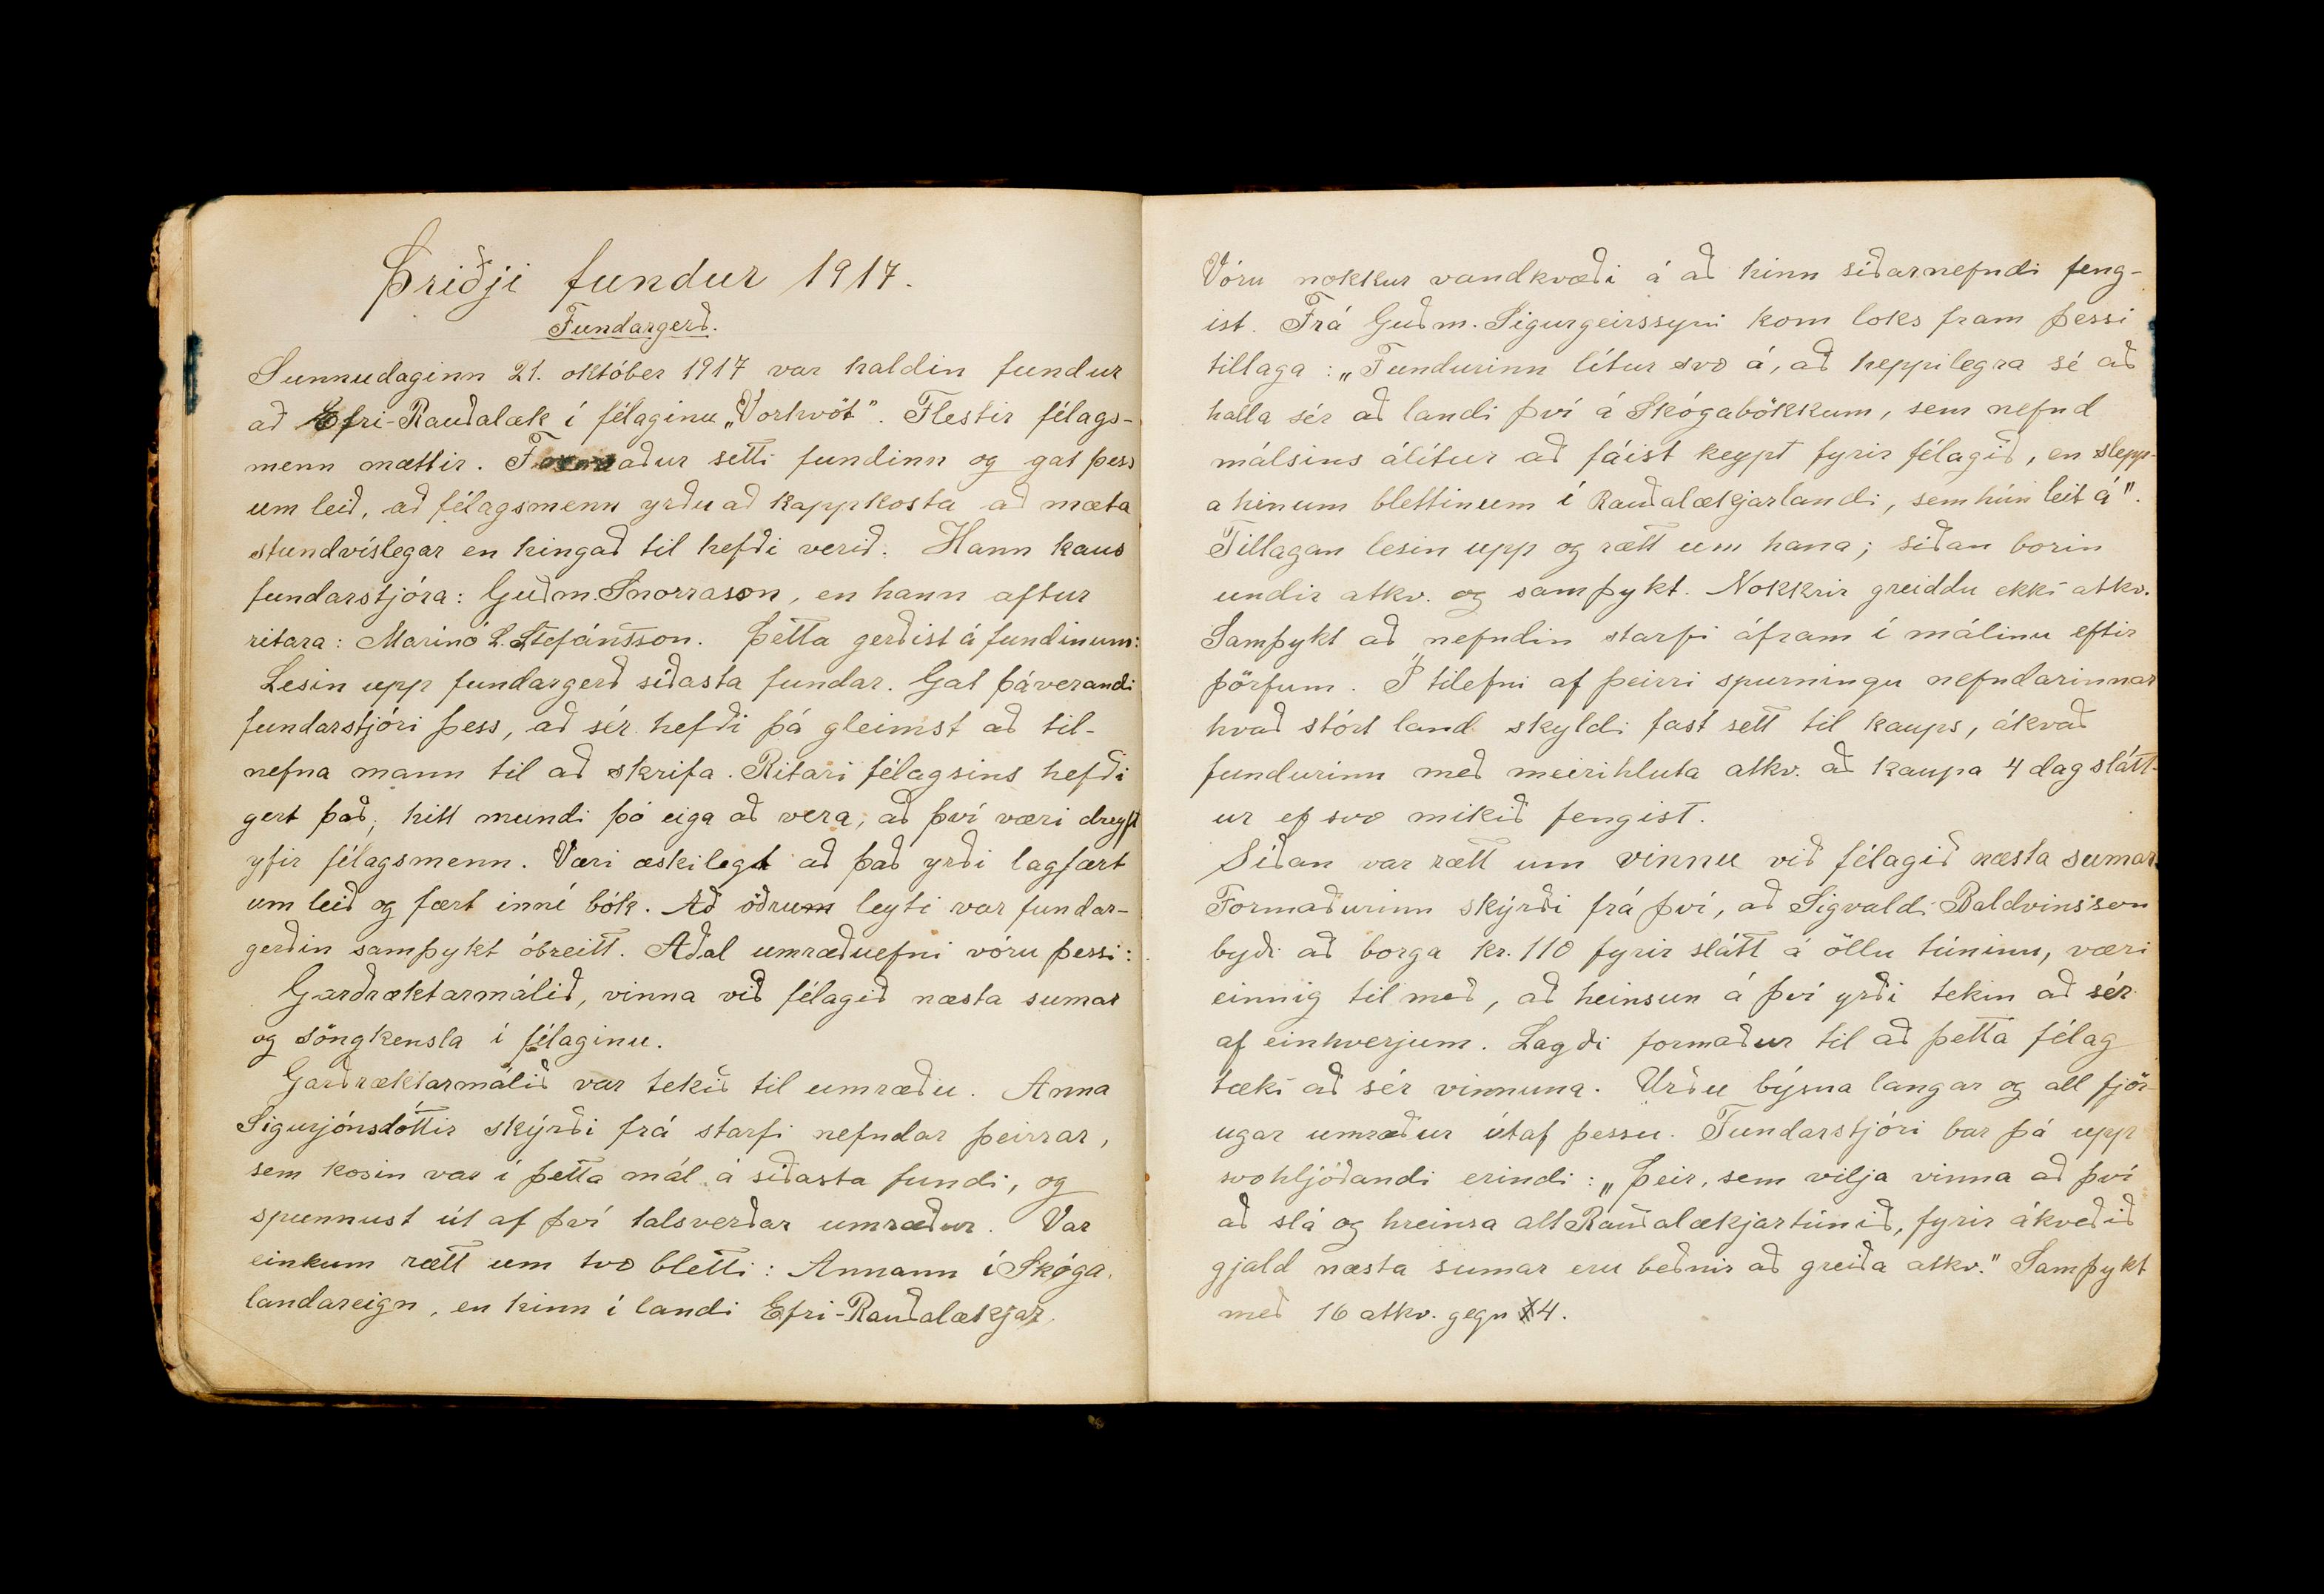 Þriðji fundur 1917.
Fundargerð.
Sunnudaginn 21. október 1917 var haldin fundur
að Efri-Rauðalæk í félaginu „Vorhvöt". Flestir félags-
menn mættir. Formaður setti fundinn og gat þess
um leið, að félagsmenn yrðu að kappkosta að mæta
stundvíslegar en hingað til hefði verið. Hann kaus
fundarstjóra: Guðm. Snorrason, en hann aftur
ritara: Marinó L. Stefánsson. Þetta gerðist á fundinum:
Lesin upp fundargerð síðasta fundar. Gat þáverandi
fundarstjóri þess, að sér hefði þá gleimst að til-
nefna mann til að skrifa. Ritari félagsins hefði
gert það; hitt mundi þó eiga að vera, að því væri dreyft
yfir félagsmenn. Væri æskilegt að það yrði lagfært
um leið og fært inní bók. Að öðrum leyti var fundar-
gerðin samþykt óbreitt. Aðal umræðuefni vóru þessi:
Garðræktarmálið, vinna við félagið næsta sumar
og söngkensla í félaginu.
Garðræktarmálið var tekið til umræðu. Anna
Sigurjónsdóttir skýrði frá starfi nefndar þeirrar,
sem kosin var í þetta mál á síðasta fundi, og
spunnust út af því talsverðar umræður. Var
einkum rætt um tvo bletti: Annann í Skóga-
landareign, en hinn í landi Efri-Rauðalækjar.
Vóru nokkur vandkvæði á að hinn síðarnefndi feng-
ist. Frá Guðm. Sigurgeirssyni kom loks fram þessi
tillaga: „Fundurinn lítur svo á, að heppilegra sé að
halla sér að landi því á Skógabökkum, sem nefnd
málsins álítur að fáist keypt fyrir félagið, en slepp-
a hinum blettinum í Rauðalækjarlandi, sem hún leit á".
Tillagan lesin upp og rætt um hana; síðan borin
undir atkv. og samþykt. Nokkrir greiddu ekki atkv.
Samþykt að nefndin starfi áfram í málinu eftir
þörfum. Í tilefni af þeirri spurningu nefndarinnar
hvað stórt land skyldi fast sett til kaups, ákvað
fundurinn með meirihluta atkv. að kaupa 4 dagslátt-
ur ef svo mikið fengist.
Síðan var rætt um vinnu við félagið næsta sumar.
Formaðurinn skýrði frá því, að Sigvaldi Baldvinsson
byði að borga kr. 110 fyrir slátt á öllu túninu, væri
einnig til með, að heinsun á því yrði tekin að sér
af einhverjum. Lagði formaður til að þetta félag
tæki að sér vinnuna. Urðu býsna langar og all fjör-
ugar umræður útaf þessu. Fundarstjóri bar þá upp
svohljóðandi erindi: „Þeir, sem vilja vinna að því
að slá og hreinsa allt Rauðalækjartúnið, fyrir ákveðið
gjald næsta sumar eru beðnir að greiða atkv." Samþykt
með 16 atkv. gegn 4.